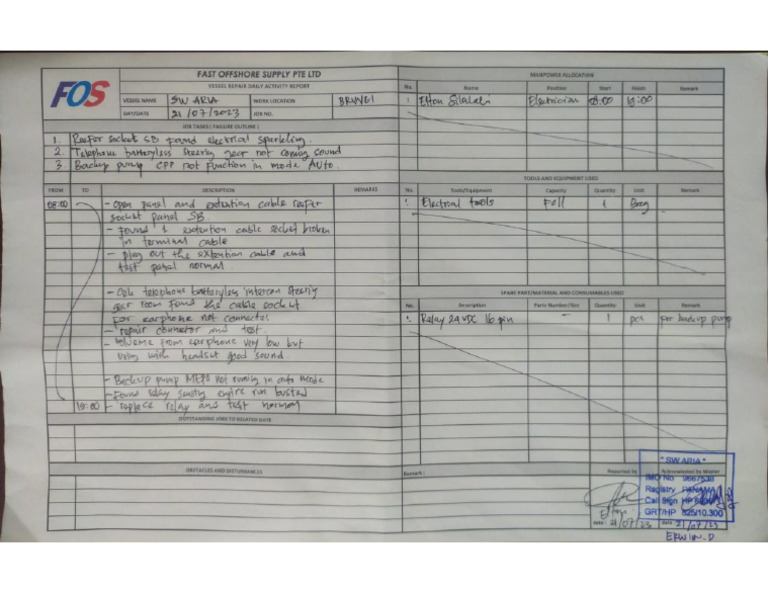 FOS
FAST OFFSHORE SUPPLY PTE LTD
VESSEL REPAIR DAILY ACTIVITY REPORT
VESSEL NAME SW ARIA WORK LOCATION BRUNEI
DAY/DATE 21/07/2023 JOB NO.
JOB TASKS ( FAILURE OUTLINE )
1. Reefer socket SB found electrical sparkling.
2. Telephone batteryless steering gear not coming sound
3. Backup pump CPP not function in mode AUTO.
FROM TO DESCRIPTION REMARKS
08:00 - Open panel and extention cable reefer
socket panel SB
- Found 1 extention cable socket broken
in terminal cable
- plug out the extention cable and
test panel normal.
telephone batteryless intercom steering
gear room found the cable socket
for earphone not connector
- repair connector and test.
- volume from earphone very low but
using with headset good sound.
- Backup pump not running in auto mode
- Found relay engine run busted
19:00 - replace relay and test normal
OUTSTANDING JOBS TO RELATED DATE
OBSTACLES AND DISTURBANCES
MANPOWER ALLOCATION
No. Name Position Start Finish Remark
1 Elton Electrician 08:00 19:00
TOOLS AND EQUIPMENT USED
No. Tools/Equipment Capacity Quantity Unit Remark
1. Electrical tools Full 1
SPARE PART/MATERIAL AND CONSUMABLES USED
No. Description Parts Number/Size Quantity Unit Remark
1. Relay 24 VDC 16 pin - 1 pcs For backup pump
Remark :
Reported by Acknowledged by Master
" SW ARIA "
IMO No 9667538
Registry PANAMA
Call Sign
GRT/HP 825/10.300
Date : 21/07/23 Date 21/07/23
ERWIN.D